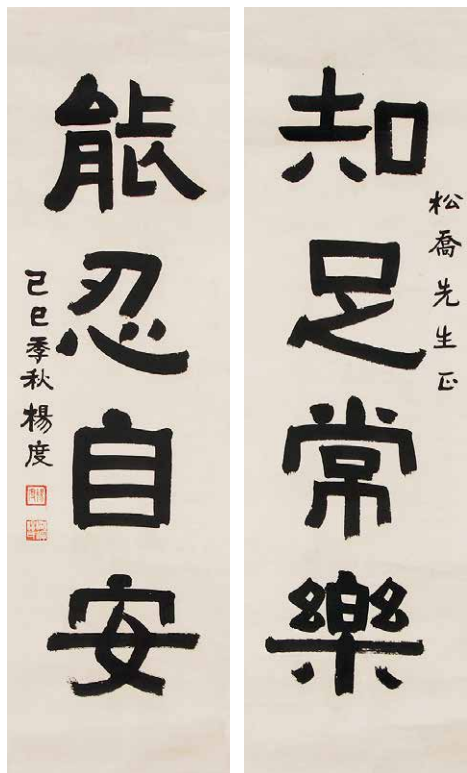 知足常樂
松喬先生正
能忍自安
己巳季秋楊度